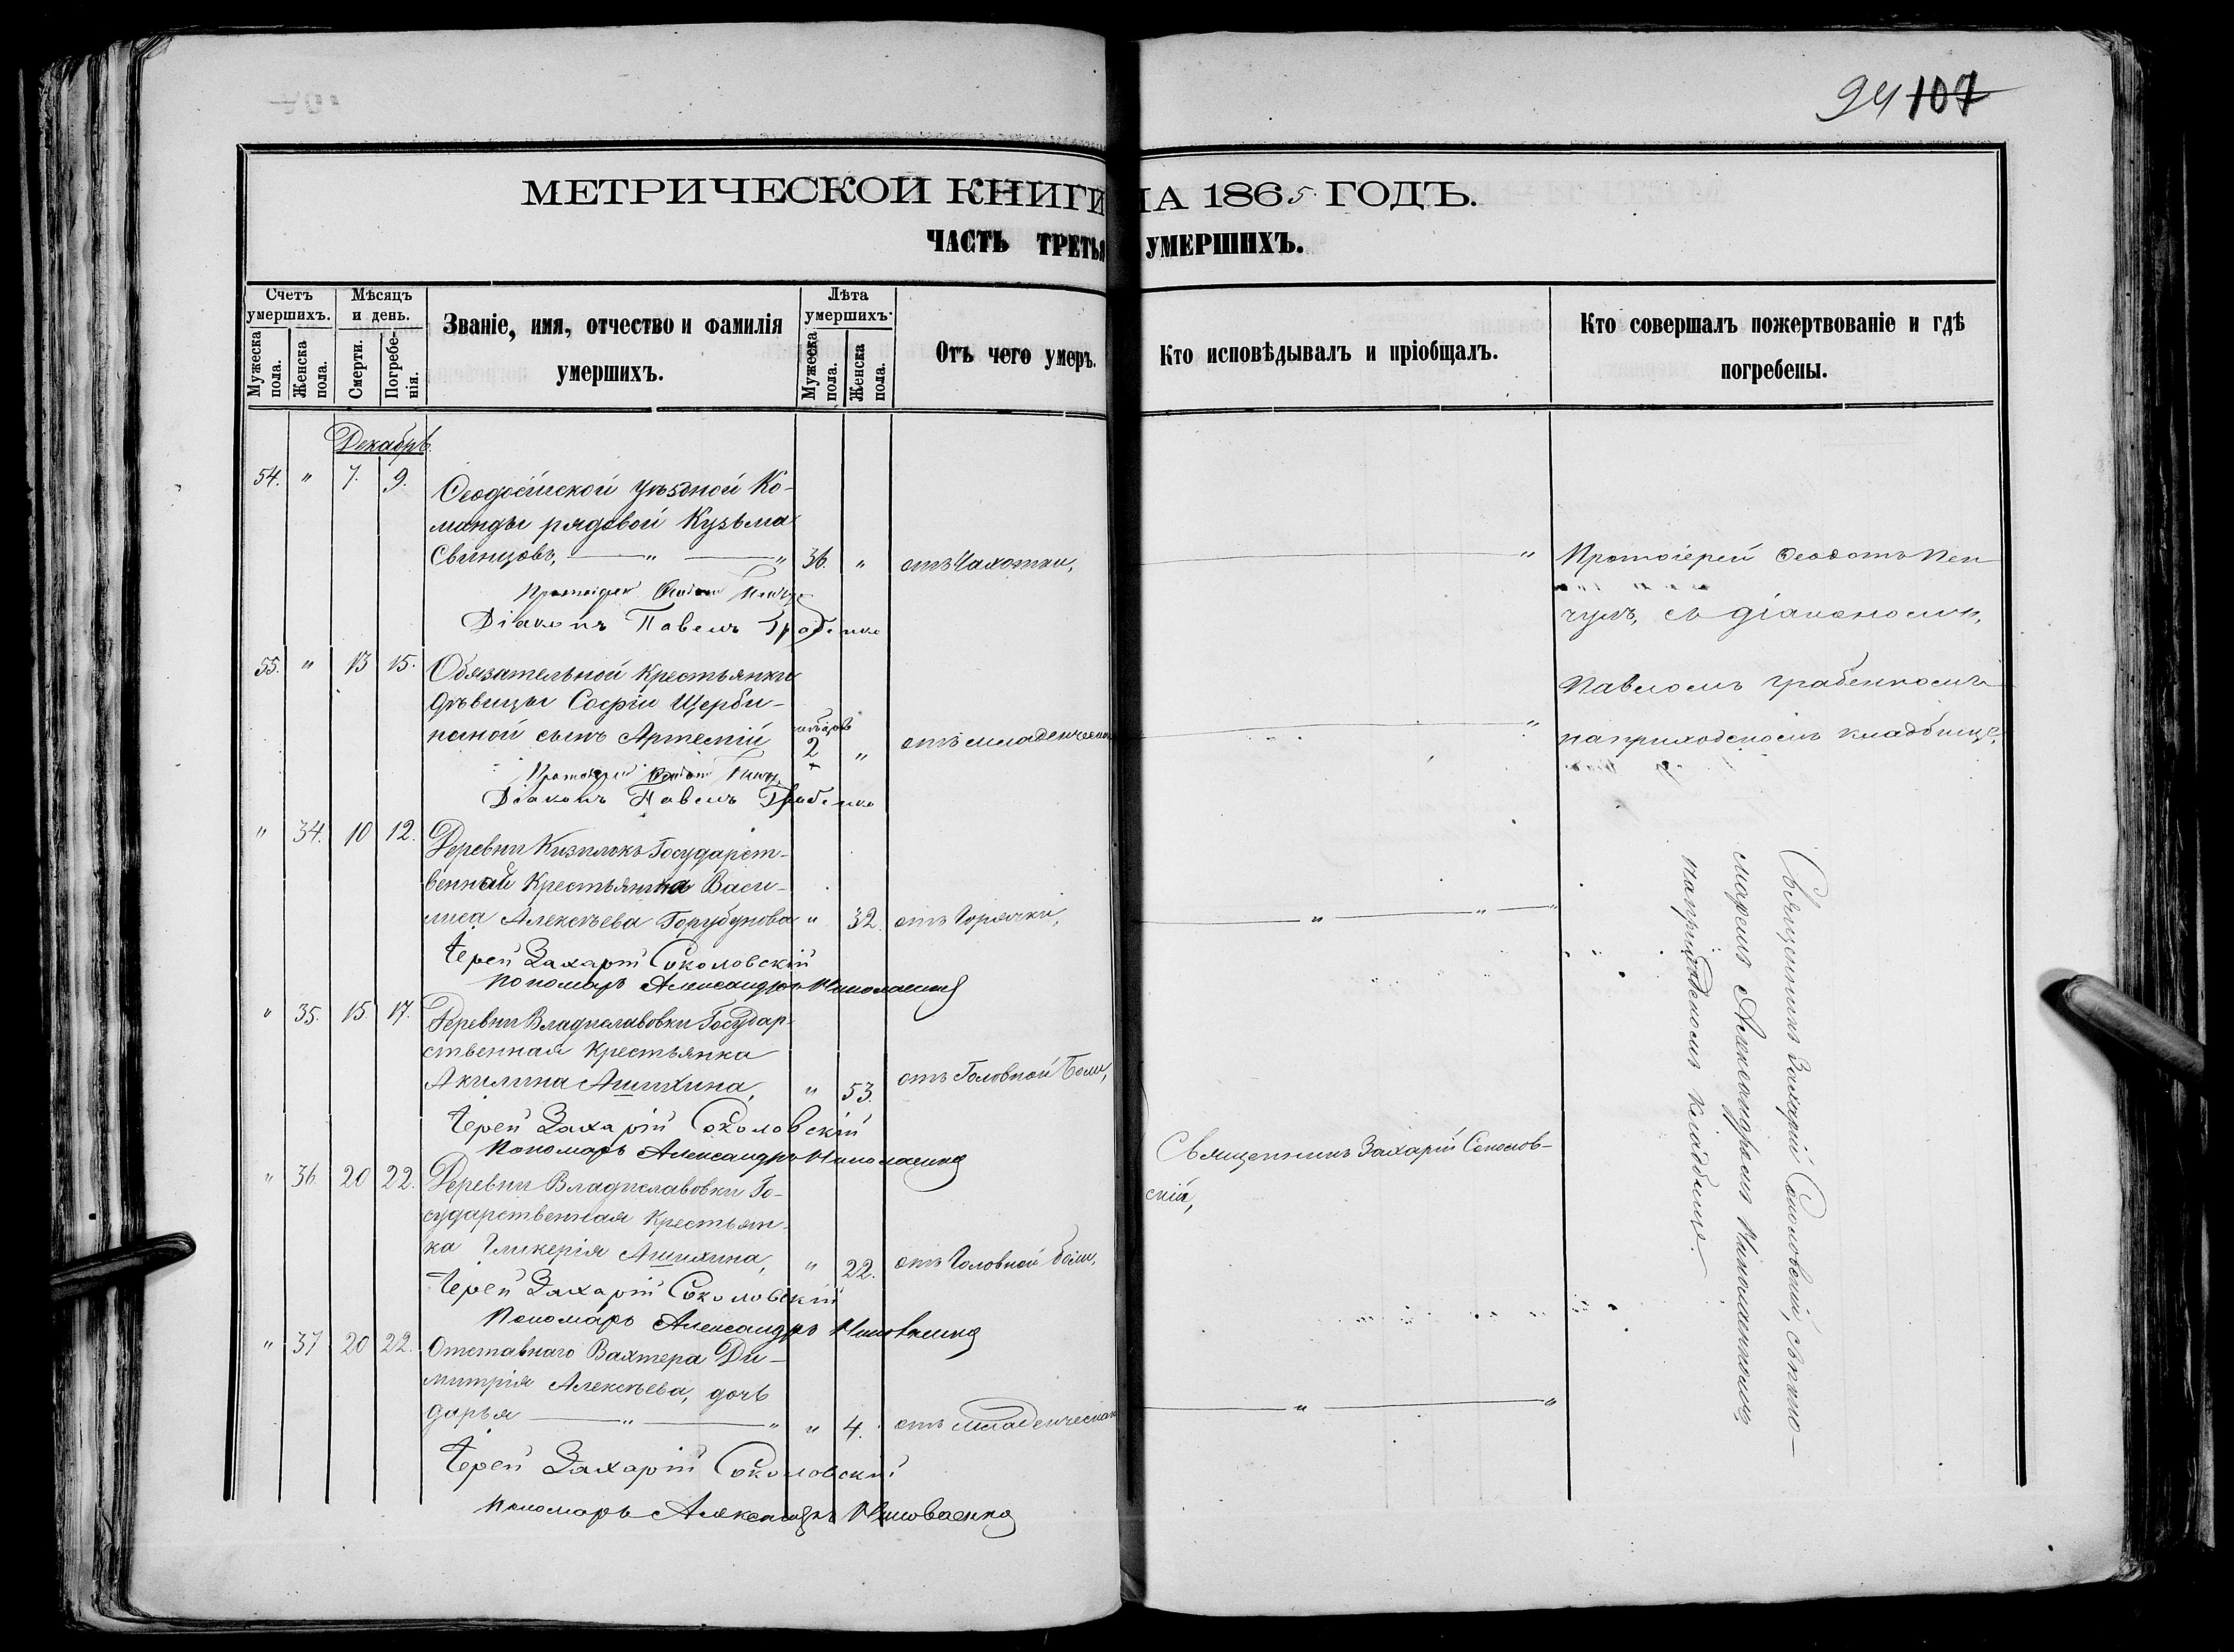 94 107
МЕТРИЧЕСКОЙ КНИГИ НА 1865 ГОДЪ.
ЧАСТЬ ТРЕТЬЯ УМЕРШИХЪ.
Счетъ умершихъ.
Мужеска пола.
Женска пола.
Мѣсяцъ и день.
Смерти.
Погребенія.
Званіе, имя, отчество и фамилія умершихъ.
Лѣта умершихъ.
Мужеска пола.
Женска пола.
Отъ чего умеръ.
Кто исповѣдывалъ и пріобщалъ.
Кто совершалъ пожертвованіе и гдѣ погребены.
Декабрь.
54. " 7. 9. Ѳеодосійской уѣздной Ко-
манды рядовой Кузьма
Свинцовъ, — " — " 36. " отъ Чахотки, — "
Протоіерей Ѳеодотъ
Діаконъ Павелъ Грабенко
Протоіерей Ѳеодотъ Пен
чулъ, съ діакономъ
Павломъ Грабенкомъ
на приходскомъ кладбище.
55. " 13 15. Обязательной крестьянки
дѣвицы Софіи Щерби-
ниной сынъ Артемій 2 " отъ младенческой — "
Протоіерей Ѳеодотъ
Діаконъ Павелъ Грабенко
" 34. 10 12. Деревни Кизилокъ Государст-
венной Крестьянка Васи-
лиса Алексѣева " 32. отъ Горячки, — " — " —
Іерей Захарій Соколовскій
Пономарь Александръ Николаенко
" 35. 15. 17. Деревни Владиславовки Государ-
ственная Крестьянка
Акилина Ашихина, " 53. отъ Головной Боли,
Іерей Захарій Соколовскій
Пономарь Александръ Николаенко
Священникъ Захарій Соколов-
скій,
" 36 20 22. Деревни Владиславовки Го-
сударственная Крестьян-
ка Гликерія Ашихина, " 22. отъ Головной боли,
Іерей Захарій Соколовскій
Пономарь Александръ Николаенко
" 37 20 22. Отставнаго Вахтера Ди-
митрія Алексѣева, дочь
Дарья — " — " " 4. отъ Младенческой — " — "
Іерей Захарій Соколовскій
Пономарь Александръ Николаенко
Священникъ Захарій Соколовскій, съ поно-
маремъ Александромъ Николаенкомъ,
на приходскомъ кладбище.